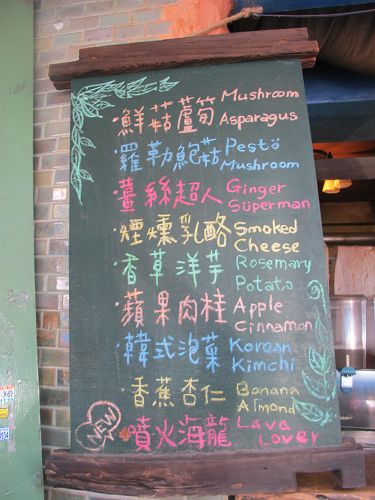 ·鮮菇蘆筍 Mushroom
Asparagus
·羅勒鮑菇 Pesto
Mushroom
·薑絲超人 Ginger
Süperman
·煙燻乳酪 Smoked
Cheese
·香草洋芋 Rosemary
Potato
·蘋果肉桂 Apple
Cinnamon
·韓式泡菜 Korean
Kimchi
·香蕉杏仁 Banana
Almond
NEW 噴火海龍 Lava
Lover